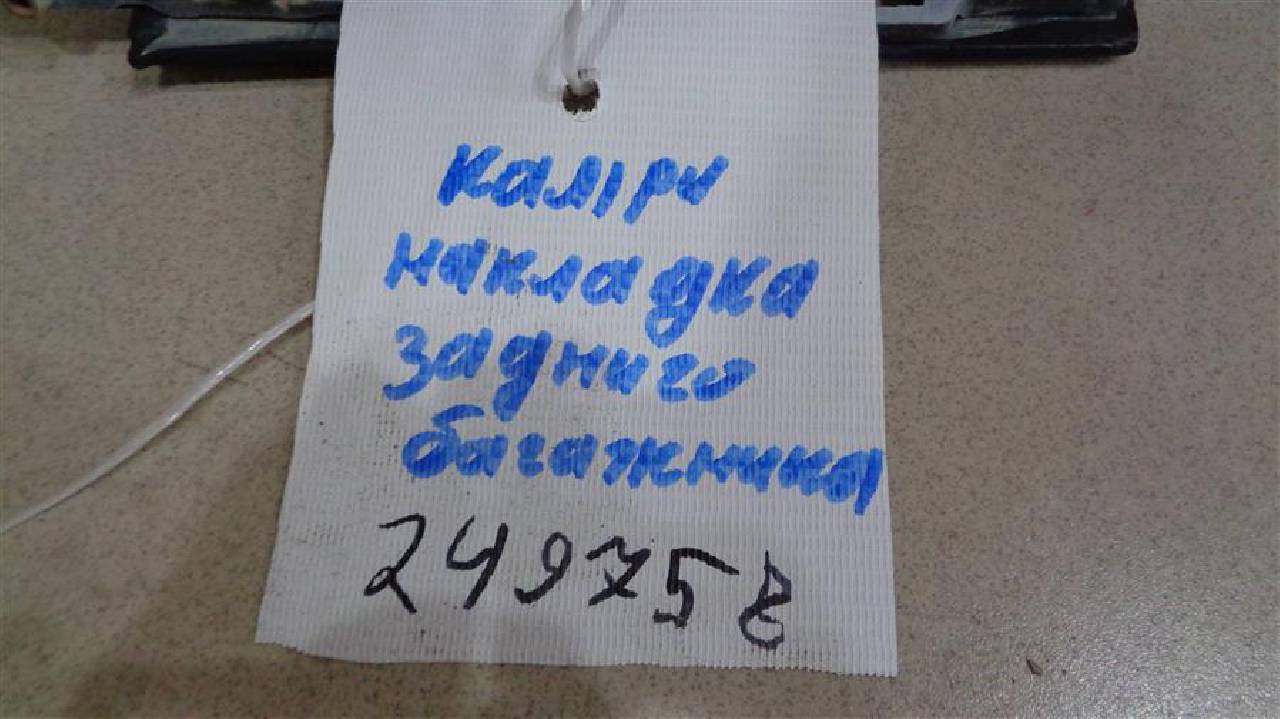 калiри
накладка
задниго
багажника
249758